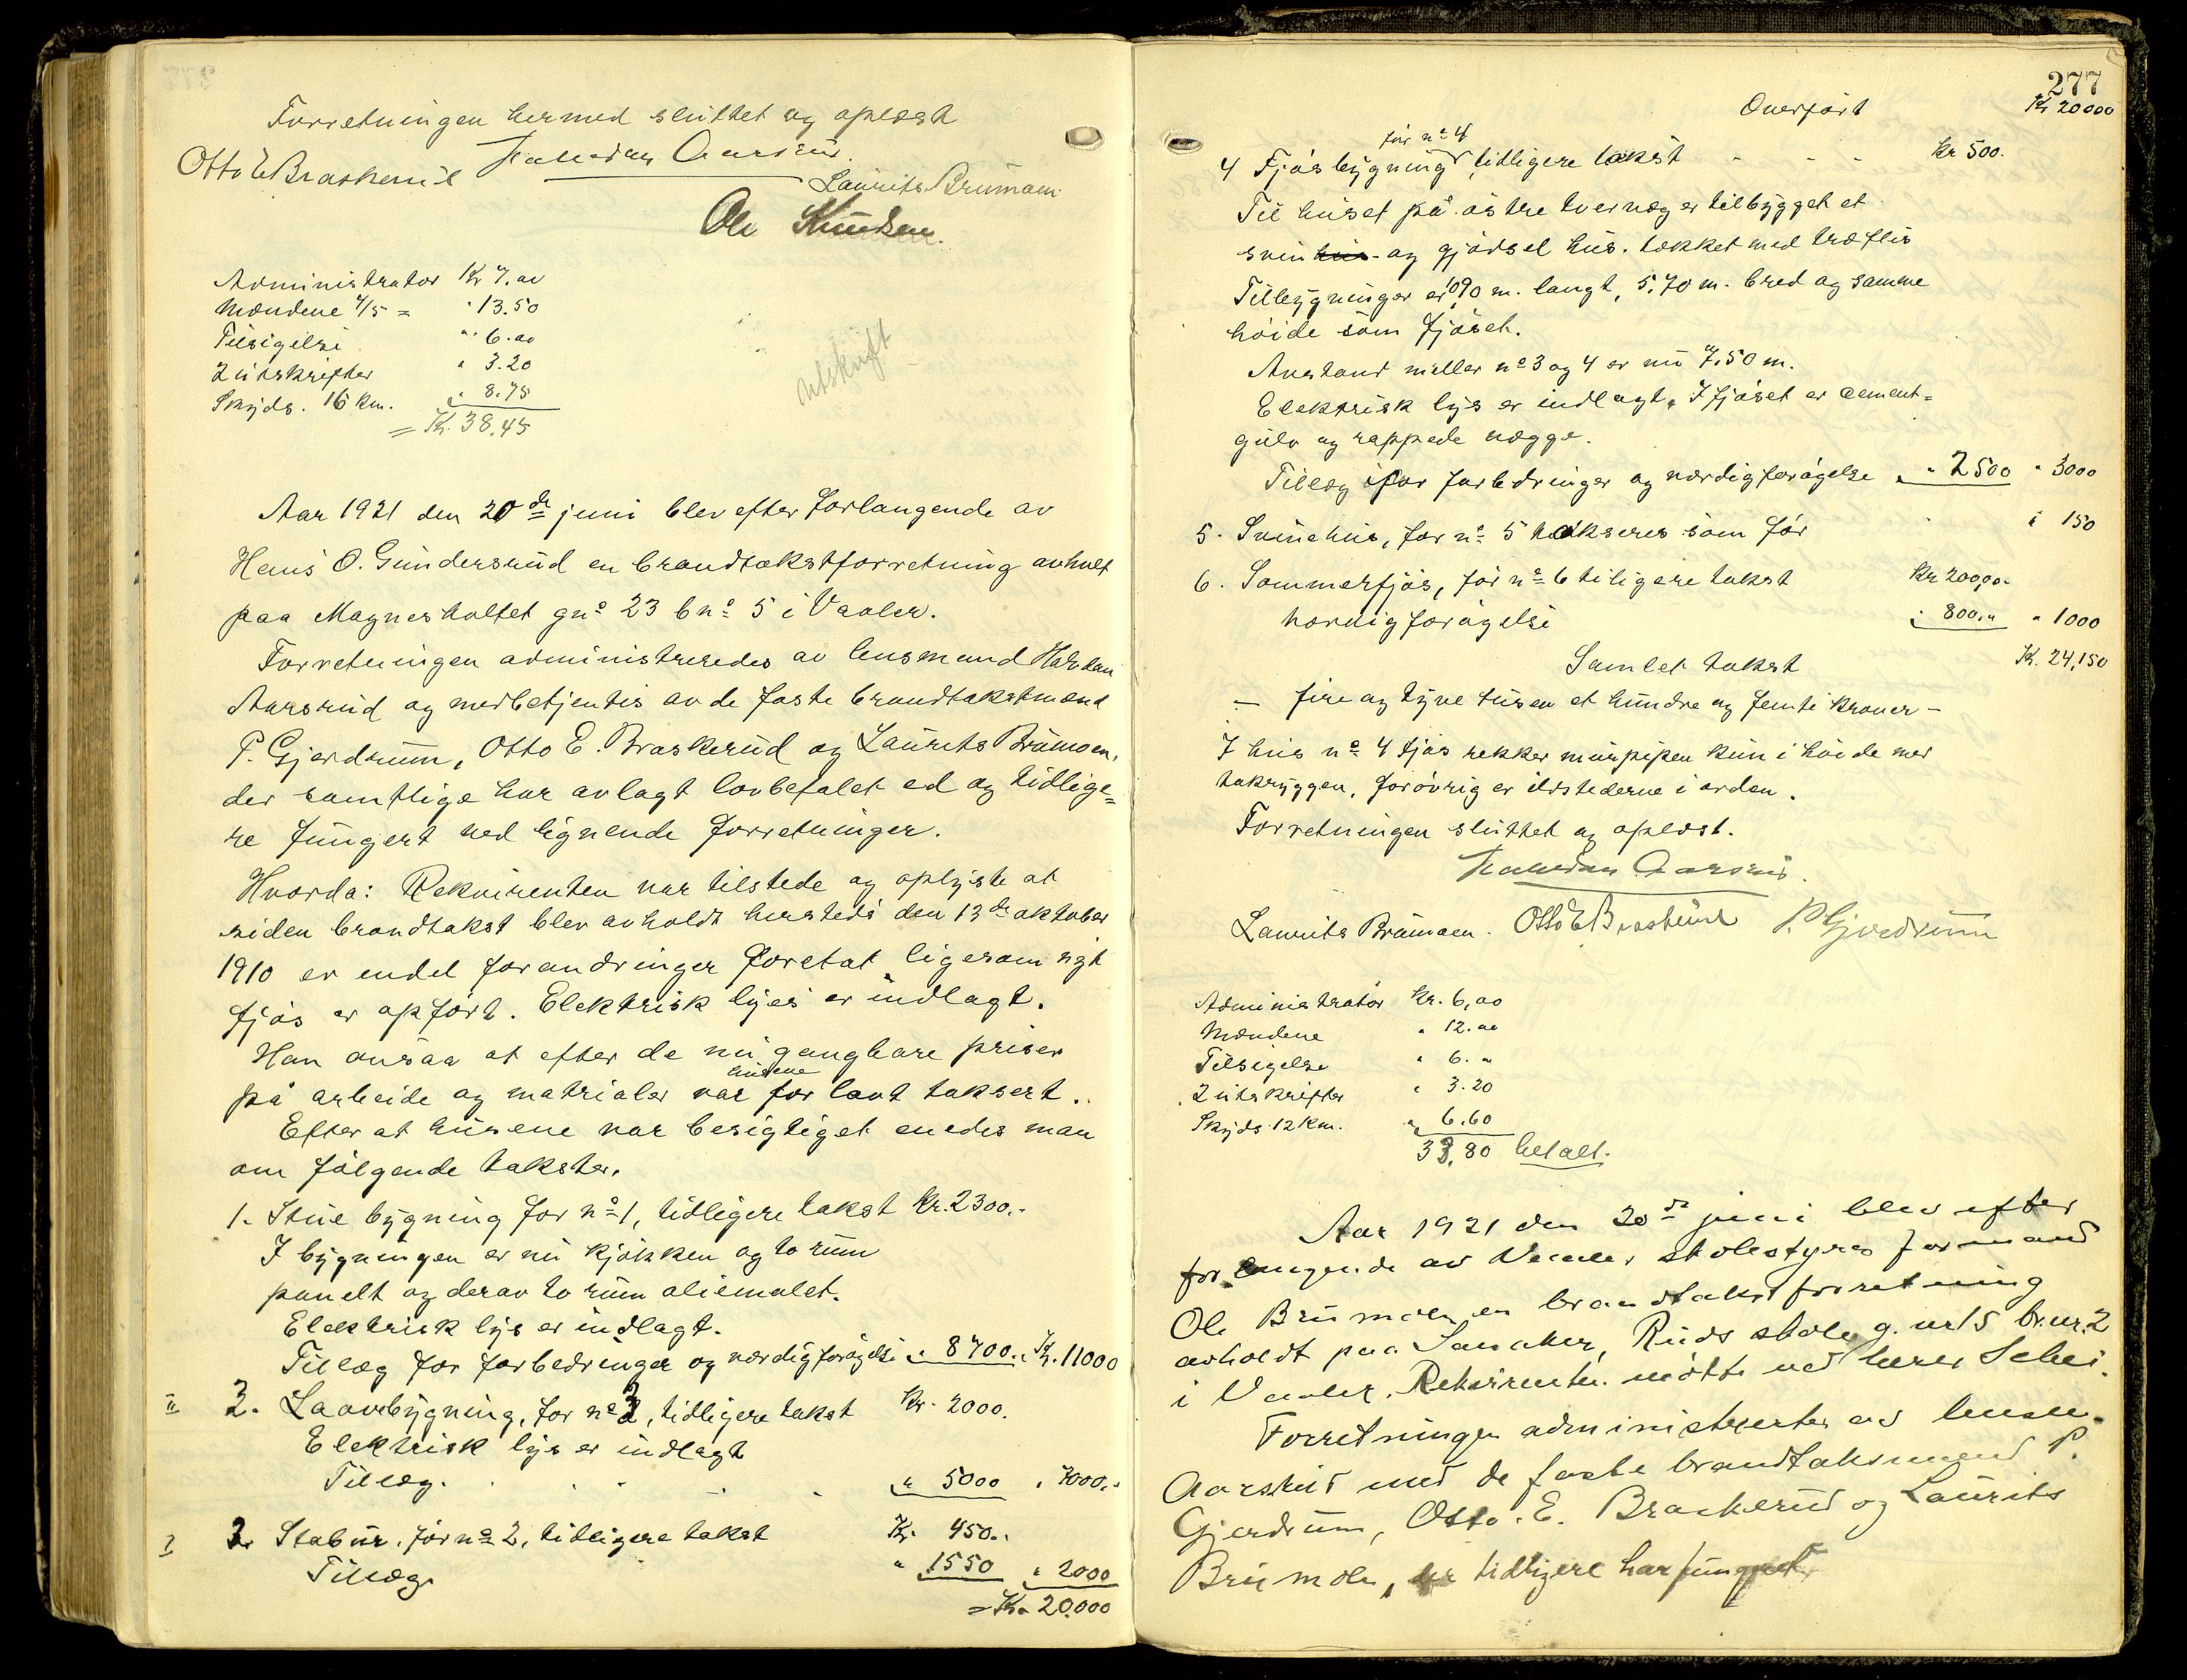 Forretningen hermed sluttet og oplæst
Halvdan Aarsrud.
Otto E Braskerud
Laurits Brumoen
Ole Knudsen.
Administrator Kr 7.00
Mændene 4/5 = " 13.50
Tilsigelse " 6.00
2 utskrifter " 3.20
Skyds. 16 km. " 8.75
= Kr. 38.45
Utskrift
Aar 1921 den 20de juni blev efter forlangende av
Hans O. Gundersrud en brandtakstforretning avholt
paa Magnesholtet gno 23 bno 5 i Vaaler.
Forretningen administreredes av lensmand Halvdan
Aarsrud og medbetjentes av de faste brandtakstmænd
P. Gjerdrum, Otto E. Braskerud og Laurits Brumoen,
der samtlige har avlagt lovbefalet ed og tidlige=
re fungert ved lignende forretninger.
Hvorda: Rekvirenten var tilstede og oplyste at
siden brandtakst blev avholdt hersteds den 13de oktober
1910 er endel forandringer foretat, ligesom nyt
fjøs er opført. Elektrisk lys er indlagt.
Han ansaa at efter de nu gangbare priser
på arbeide og matrialer var husene for lavt taksert.
Efter at husene var besigtiget enedes man
om følgende takster.
1. Stue bygning før no 1, tidligere takst Kr. 2300.-
I bygningen er nu kjøkken og to rum
panelt og derav to rum oliemalet.
Elektrisk lys er indlagt.
Tillæg for forbedringer og værdiforøgelse " 8700.- Kr. 11000
II 2. Laavebygning, før no 3, tidligere takst Kr. 2000.
Elektrisk lys er indlagt
Tillæg. " 5000 " 7000.-
I 3. Stabur. før no 2, tidligere takst Kr. 450.-
Tillæg. " 1550 " 2000
= Kr. 20.000
277
Overført Kr 20000
4 Fjøsbygning før no 4, tidligere takst - - - Kr 500.
Til huset på østre tvervæg er tilbygget et
svin hus- og gjødsel hus. tækket med træflis
Tilbygningen er 0,90 m. langt, 5,70 m. bred og samme
høide som fjøset.
Avstand mellem no 3 og 4 er nu 7,50 m.
Elektrisk lys er indlagt, I fjøset er cement=
gulv og rappede vægge.
Tillæg for forbedringer og værdiforøgelse " 2500 " 3000
5. Svinehus, før no 5 takseres som før " 150
6. Sommerfjøs, før no 6 tiligere takst Kr 200,00
værdigforøgelse " 800.- " 1000
Samlet takst Kr. 24,150
- fire og tyve tusen et hundre og femti kroner -
I hus no 4 fjøs rekker murpipen kun i høide med
takryggen, forøvrig er ildstederne i orden.
Forretningen sluttet og oplæst.
Halvdan Aarsrud.
Laurits Brumoen. Otto E Braskerud P. Gjerdrum
Administrator Kr. 6,00
Mændene " 12.00
Tilsigelse " 6. "
2 utskrifter " 3.20
Skyds 12 km. " 6.60
33.80 betalt.
Aar 1921 den 20de juni blev efter
forlangende av Vaaler skolestyres formand
Ole Brumoen en brandtakstforretning
avholdt paa Sanaker, Ruds skole g. nr 15 br. nr. 2
i Vaaler. Rekvirenten møtte ved lærer Schei.
Forretningen administrertes av lensm.
Aarsrud med de faste brandtaksmænd P.
Gjerdrum, Otto. E. Braskerud og Laurits
Brumoen, der tidligere har fungert